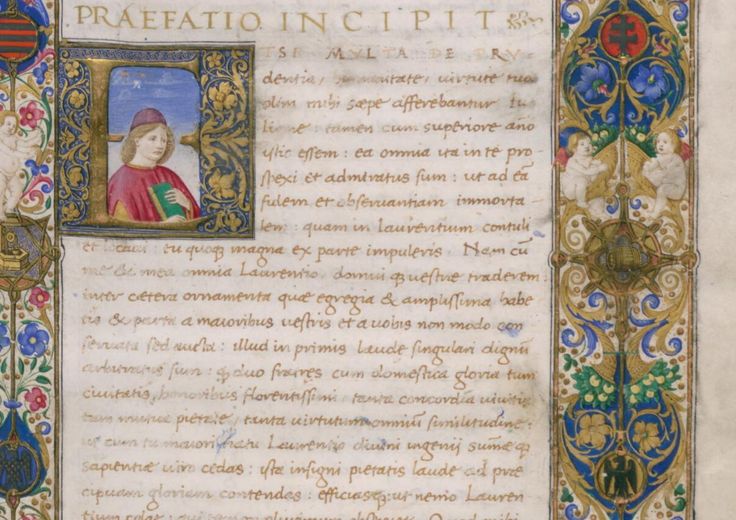 PRAEFATIO INCIPIT
ETSI MVLTA DE PRV
dentia, humanitate, virtute tua
olim mihi saepe afferebantur Iu
liane: tamen cum superiore año
istic essem: ea omnia ita in te pro
spexi et admiratus sum: ut ad eã
fidem et observantiam immorta
lem: quam in Laurentium contuli
et tu quoq magna ex parte impuleris. Nam cũ
me & mea omnia Laurentio, domui q vestrae traderem
inter caetera ornamenta quae egregia & amplissima habe
tis & parta a maioribus vestris et a vobis non modo con
servata sed aucta: illud in primis laude singulari dignũ
arbitratus sum: q duo fratres cum domestica gloria tum
civitatis honoribus florentissimi tanta concordia vivitis
tam mutua pietate, tanta virtutum omniũ similitudine:
ut cum tu maiori natu Laurentio divini ingenii summae q
sapientiae viro cedas: ista insigni pietatis laude ad prae
cipuam gloriam contendas: efficiasq: ut nemo Lauren
tium